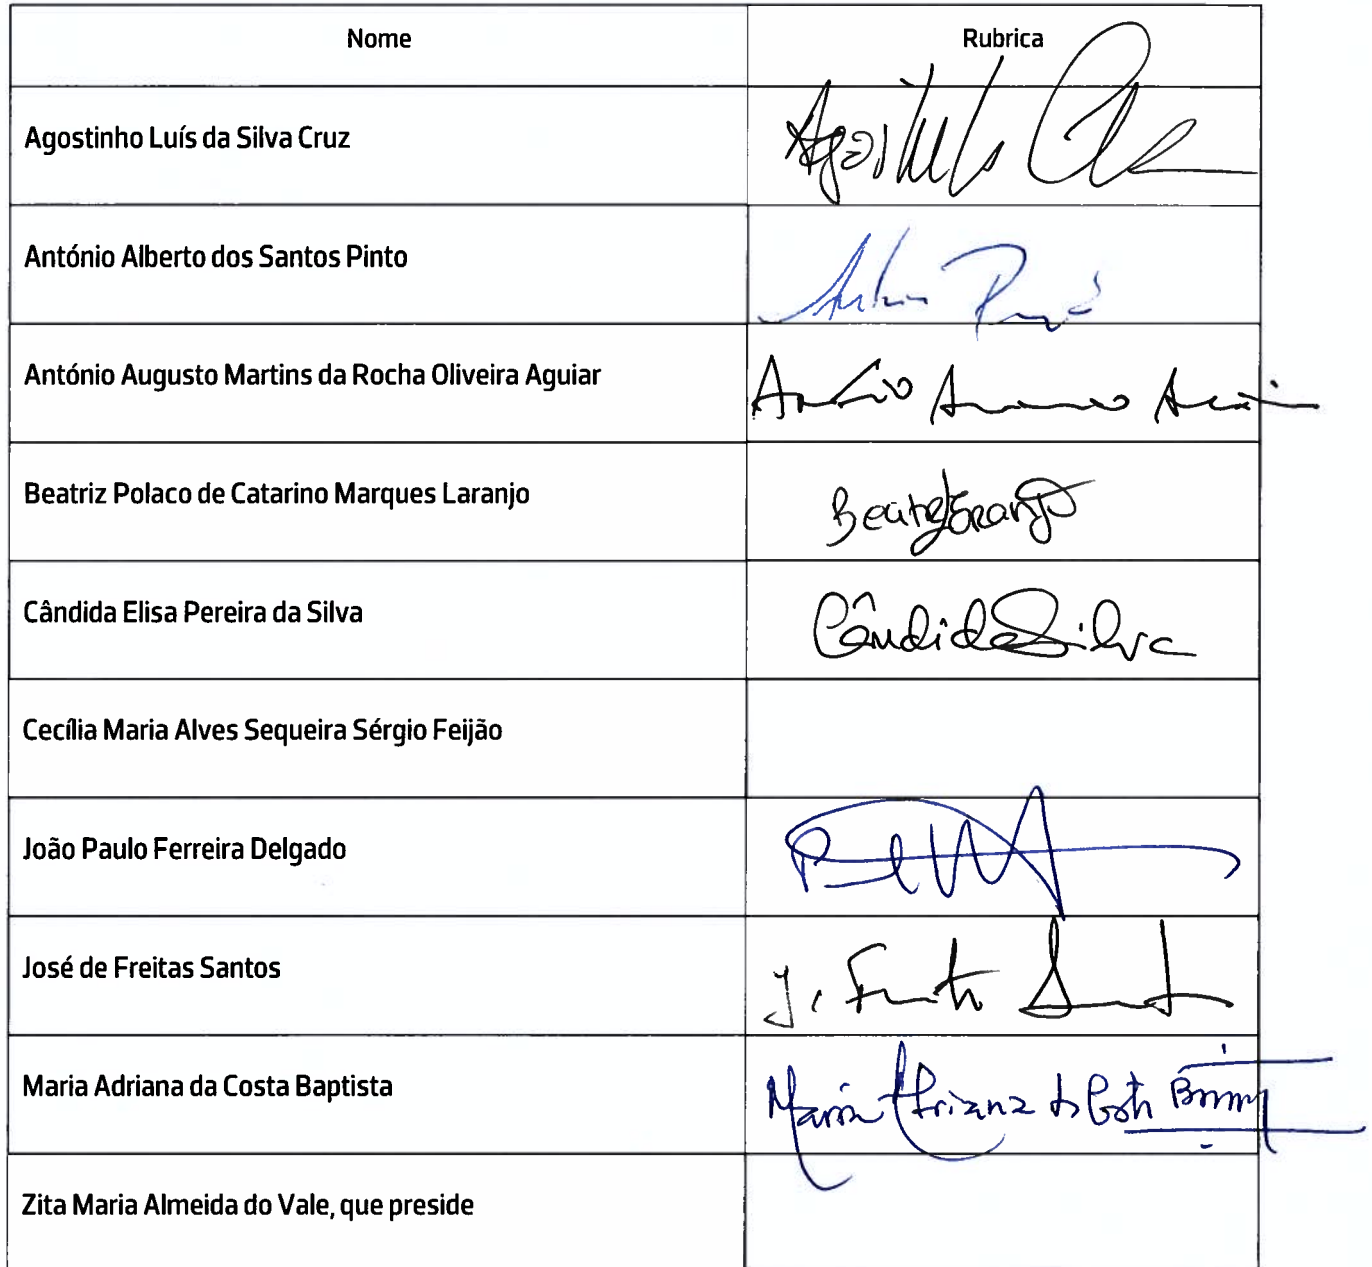 Nome Rubrica
Agostinho Luís da Silva Cruz Agostinho
António Alberto dos Santos Pinto
António Augusto Martins da Rocha Oliveira Aguiar António
Beatriz Polaco de Catarino Marques Laranjo Beatriz Laranjo
Cândida Elisa Pereira da Silva Cândida Silva
Cecília Maria Alves Sequeira Sérgio Feijão
João Paulo Ferreira Delgado
José de Freitas Santos J.
Maria Adriana da Costa Baptista Maria Adriana da Costa
Zita Maria Almeida do Vale, que preside